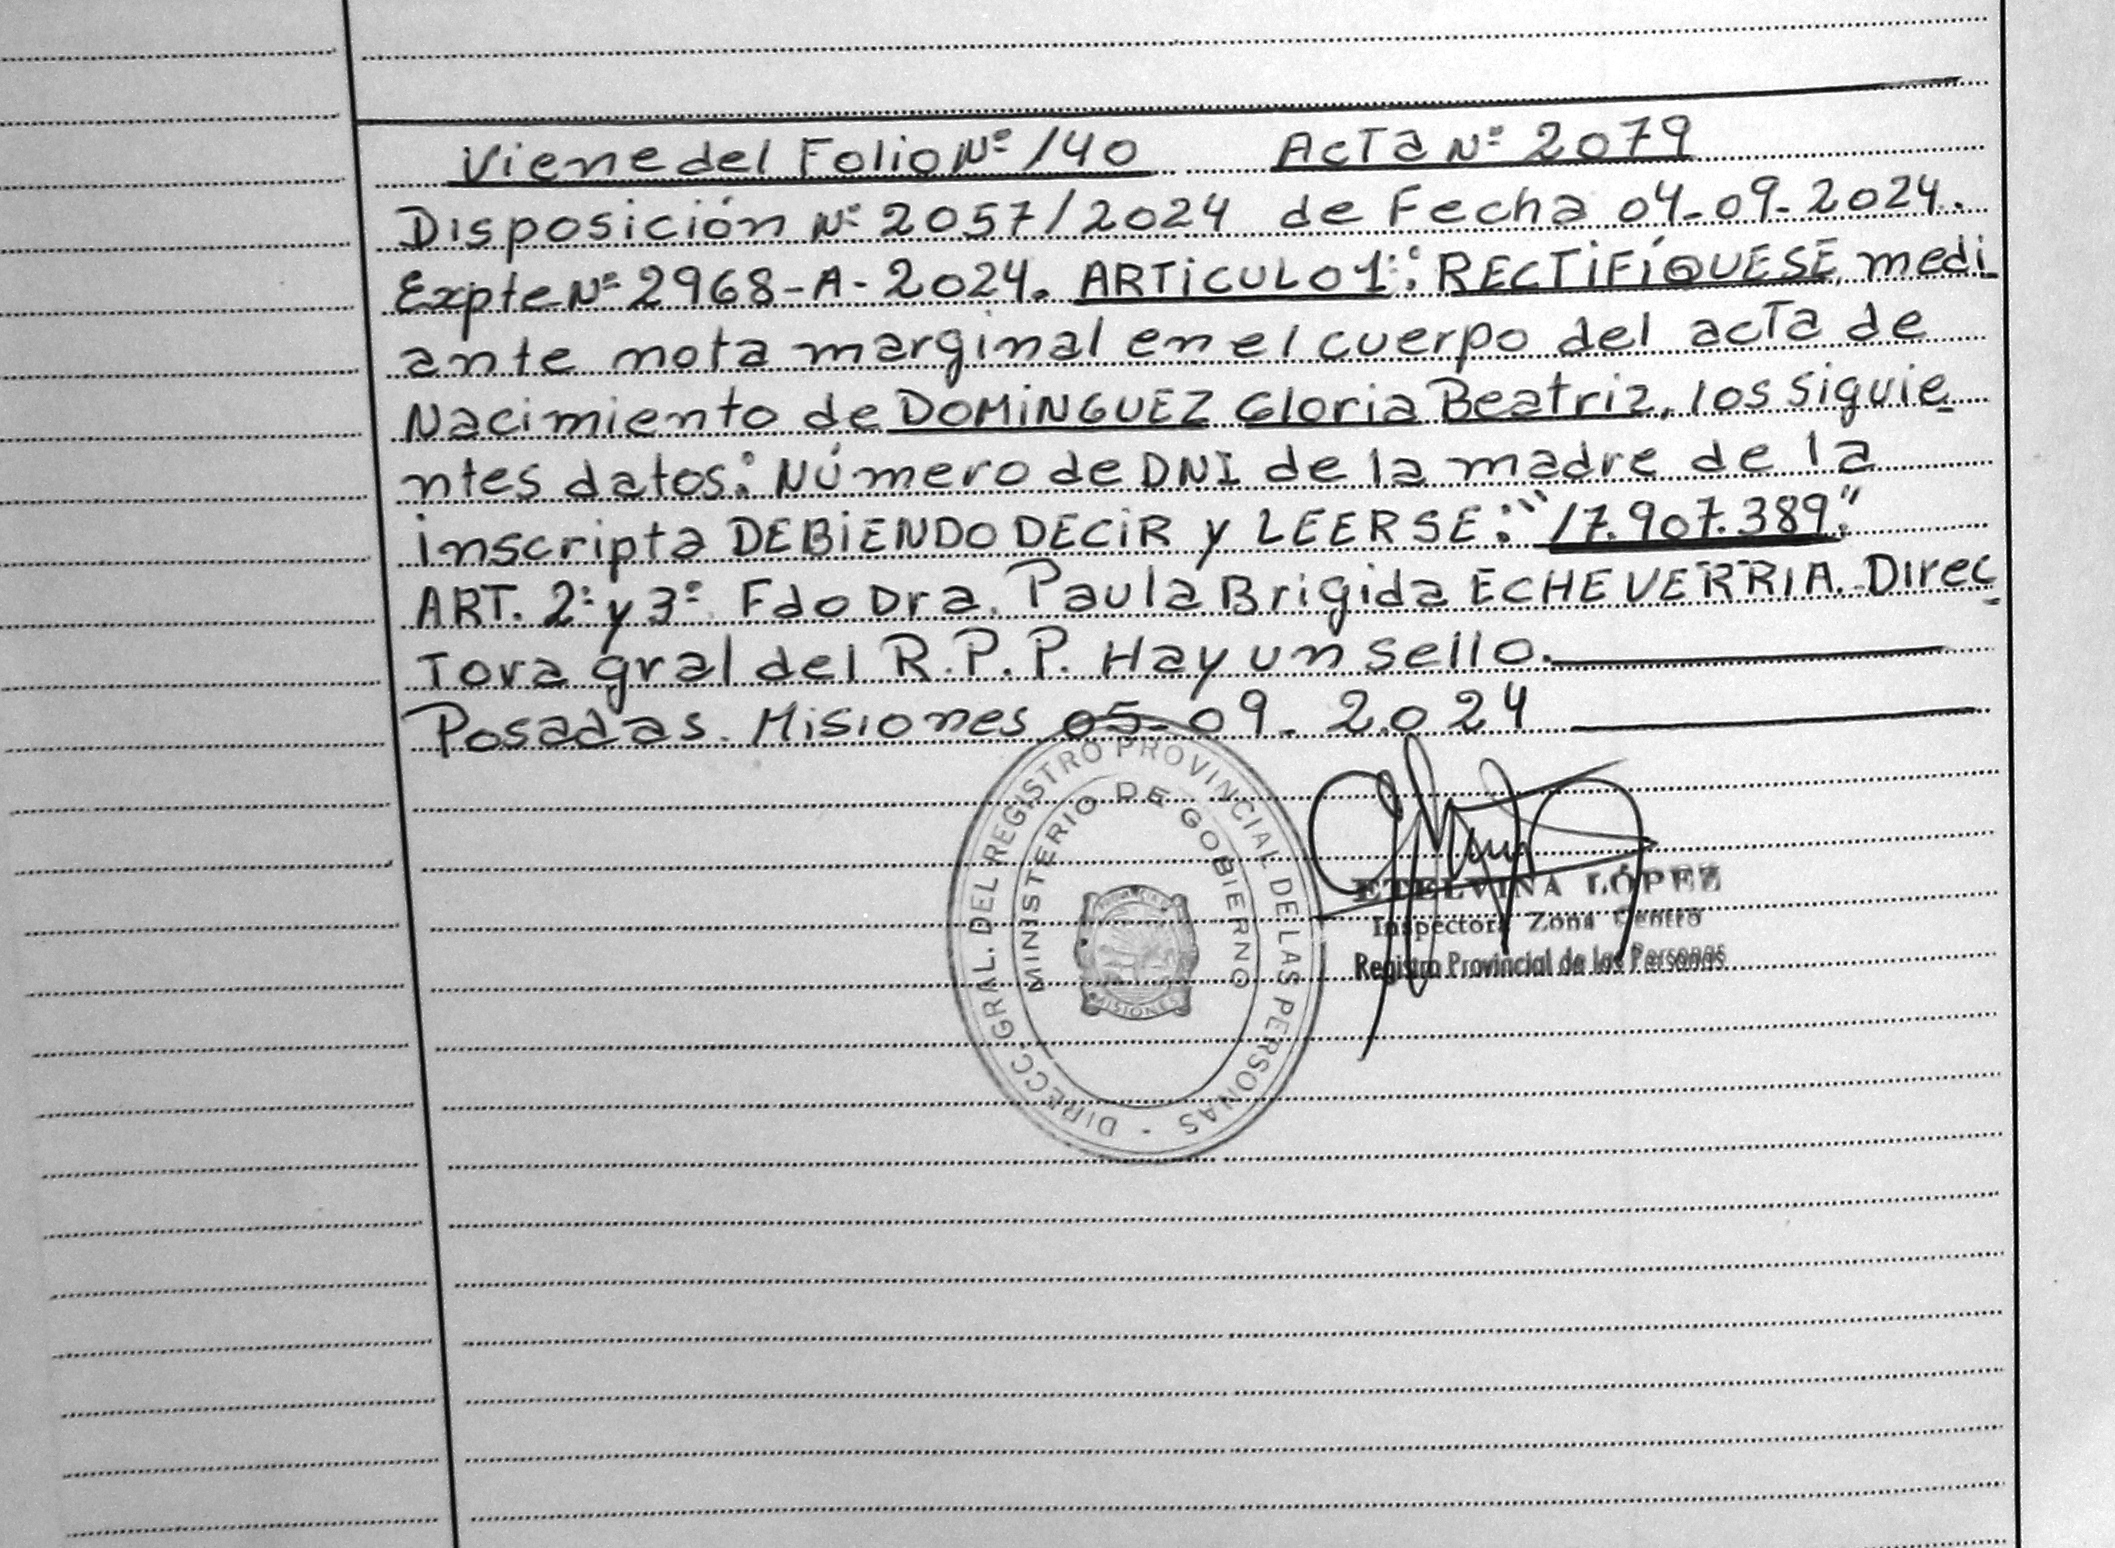 Viene del Folio Nº 140 Acta Nº 2079
Disposición Nº 2057/2024 de Fecha 04-09-2024.
Expte Nº 2968-A-2024. ARTICULO 1º: RECTIFÍQUESE medi
ante nota marginal en el cuerpo del acta de
Nacimiento de DOMINGUEZ Gloria Beatriz, los siguie
ntes datos: Número de DNI de la madre de la
inscripta DEBIENDO DECIR y LEERSE: "17.907.389."
ART. 2º y 3º Fdo Dra. Paula Brigida ECHEVERRIA. Direc
tora gral del R.P.P. Hay un sello.
Posadas. Misiones 05-09-2.024
DIRECC. GRAL. DEL REGISTRO PROVINCIAL DE LAS PERSONAS -
MINISTERIO DE GOBIERNO
MISIONES
ETELVINA LÓPEZ
Inspectora Zona Centro
Registro Provincial de las Personas